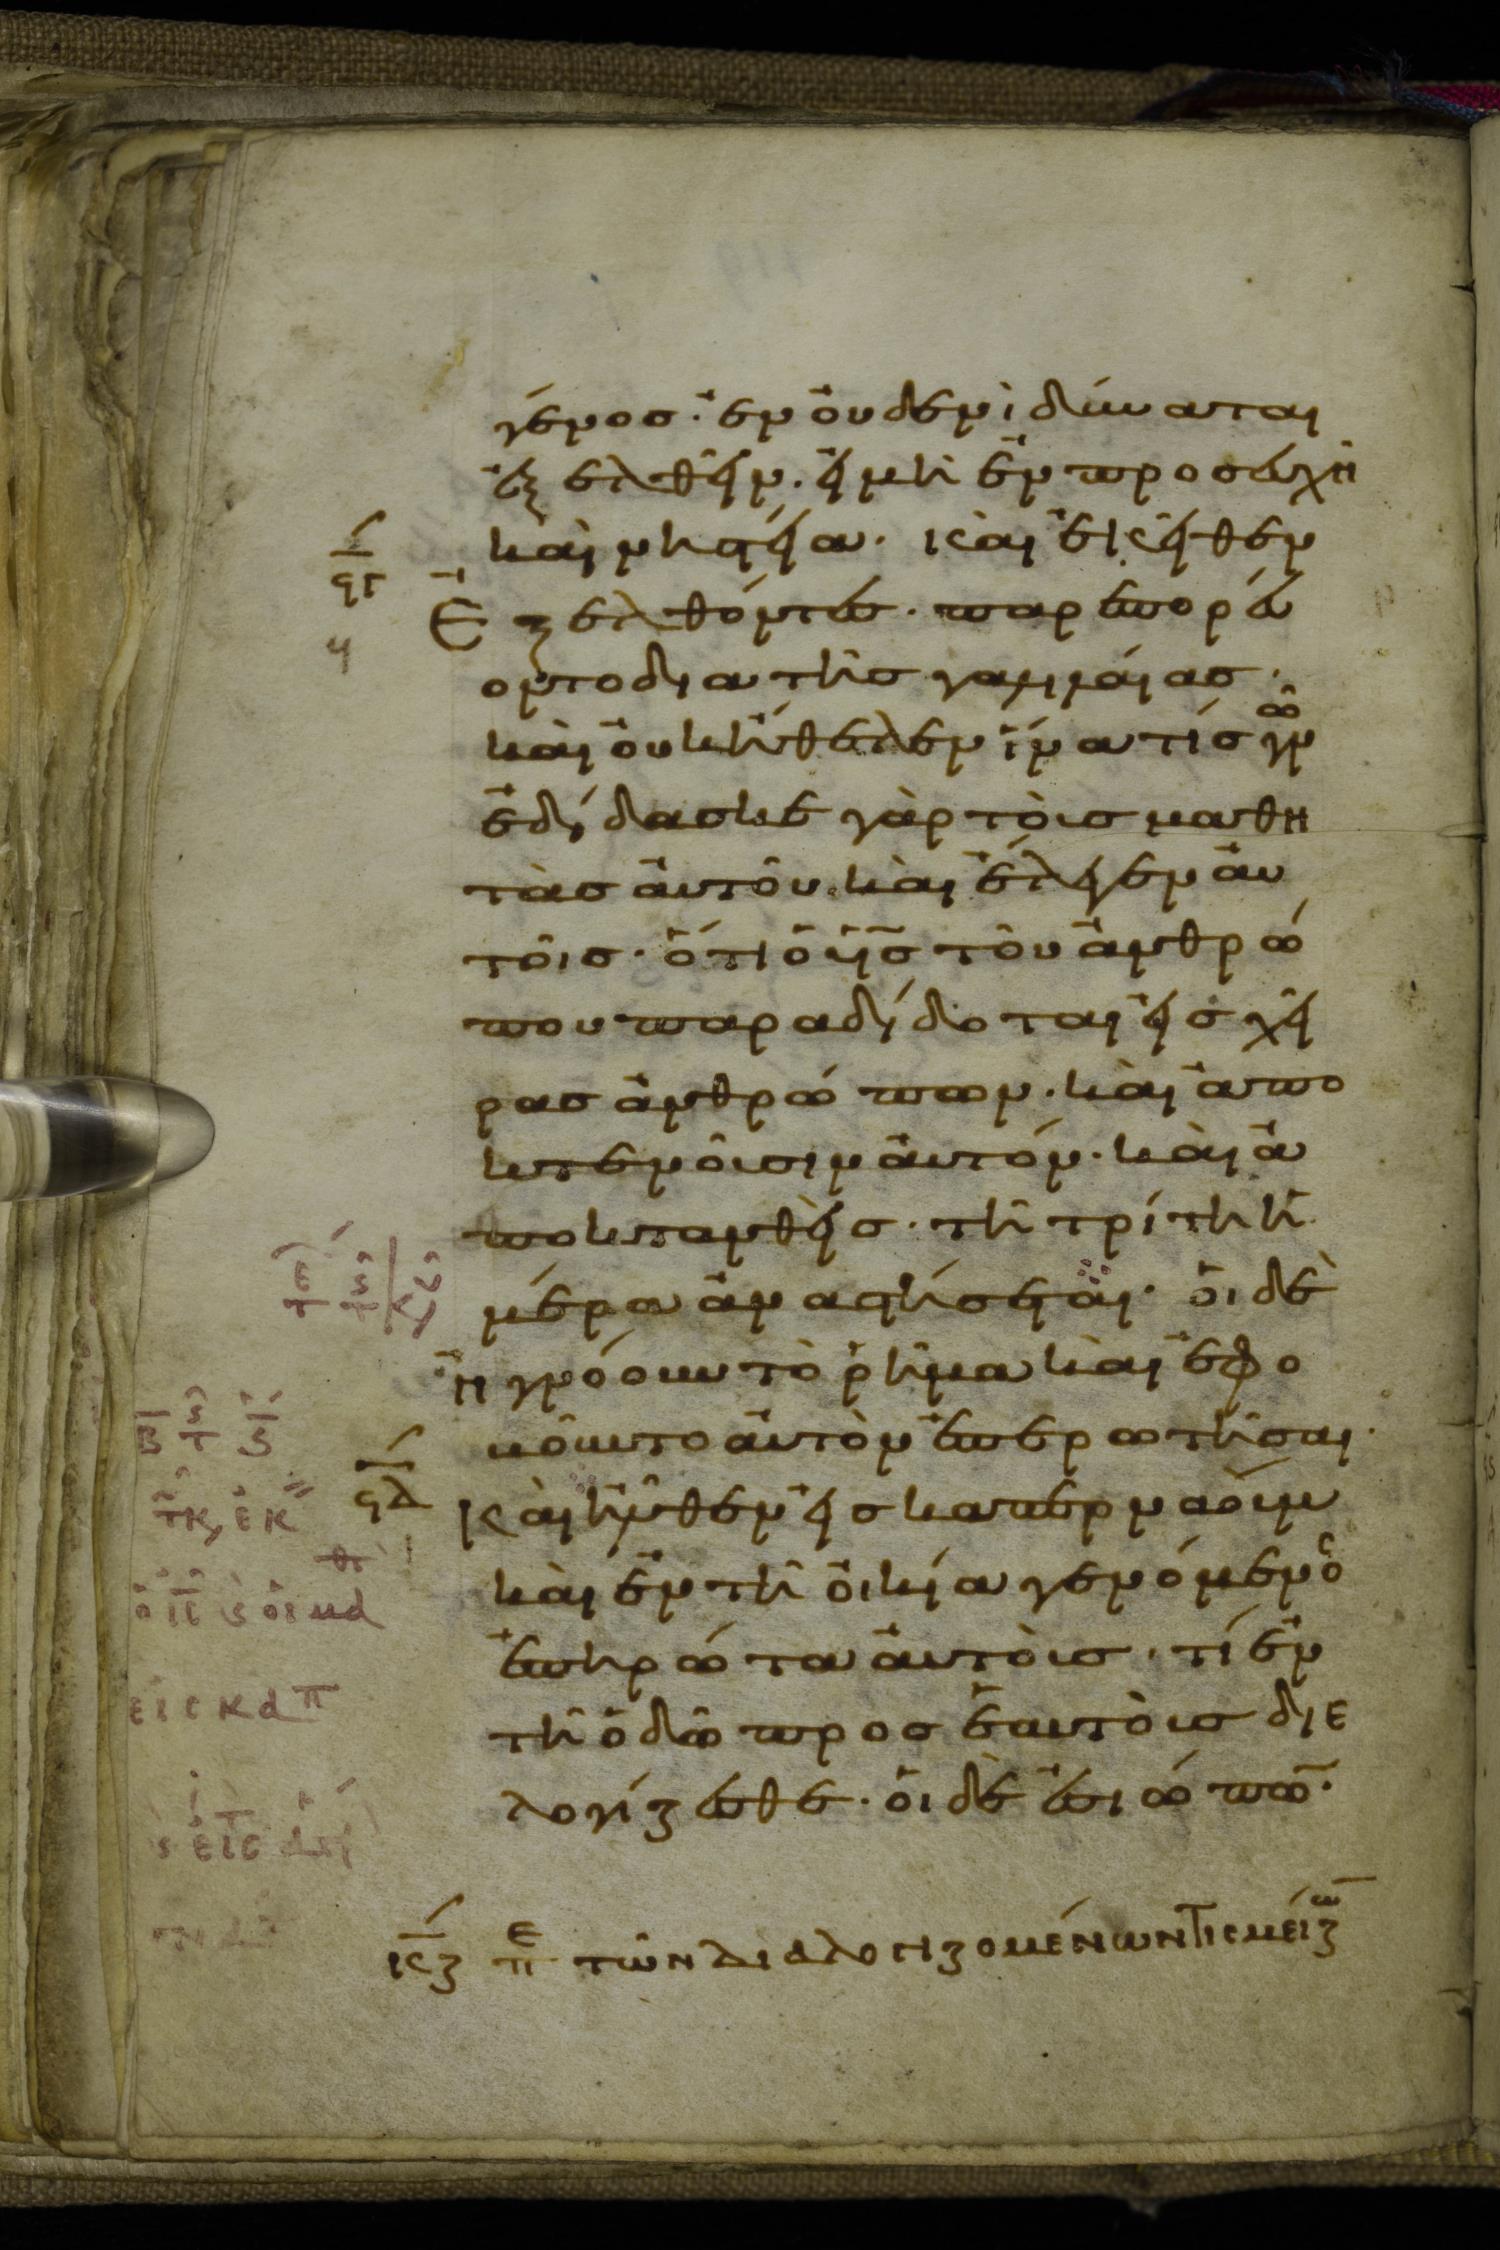 γένος· ἐν οὐδενὶ δύναται
ἐξελθεῖν· εἰ μὴ ἐν προσευχῆ
καὶ νηστεία· καὶ ἐκεῖθεν
ϟγ
Ἐξελθόντες· παρεπορεύ
οντο διὰ τῆς γαλιλαίας·
καὶ οὐκ ἤθελεν ἵνα τίς γνῶ
ἐδίδασκε γὰρ τοὺς μαθη
τὰς αὐτοῦ· καὶ ἔλεγεν αὐ
τοῖς· ὅτι ὁ υἱς τοῦ ἀνθρώ
που παραδίδοται εἰς χεῖ
ρας ἀνθρώπων· καὶ ἀπο
κτενοῦσιν αὐτόν· καὶ ἀ
ποκτανθεὶς· τῆ τρίτη ἡ
μέρα ἀναστήσεται· οἱ δὲ
ἠγνόουν τὸ ῥῆμα καὶ ἐφο
βοῦντο αὐτὸν ἐπερωτῆσαι·
ϟδ
καὶ ἦλθεν εἰς καπερναοὺμ
καὶ ἐν τῆ οἰκία γενόμενος
ἐπηρώτα αὐτοὺς· τί ἐν
τῆ ὁδῶ προς ἑαυτοὺς διε
λογίζεσθε· οἱ δὲ ἐσιώπω̄·
κϛ πε τῶν διαλογιζομένων τίς μείζω